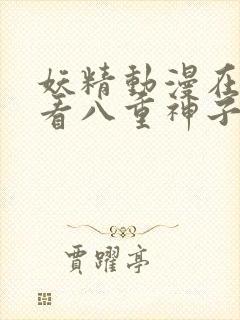 妖精動漫在
看八重神子
賈躍亭